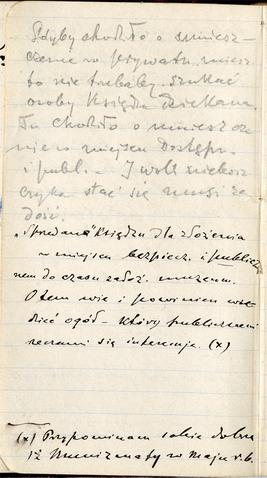 Gdyby chodziło o umiesz-
czenie w prywatn. miesz.
to nie trzebaby szukać
osoby Księdza Dziekana.
Tu chodziło o umieszcze
nie w miejscu dostępn.
i publ. – I woli większ
stać się musi za
dość.
„Sprzedana" Księdzu dla złożenia
w miejscu bezpiecz. i publicz
nem do czasu założ. muzeum.
O tem wie i powinien wie
dzieć ogół – który publicznemi
sprawami się interesuje. (x)
(x) Przypominam sobie dobrze
w maju r. b.